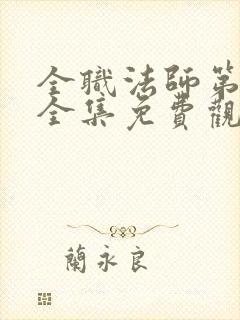 全職法師第
全集免費觀
蘭永良